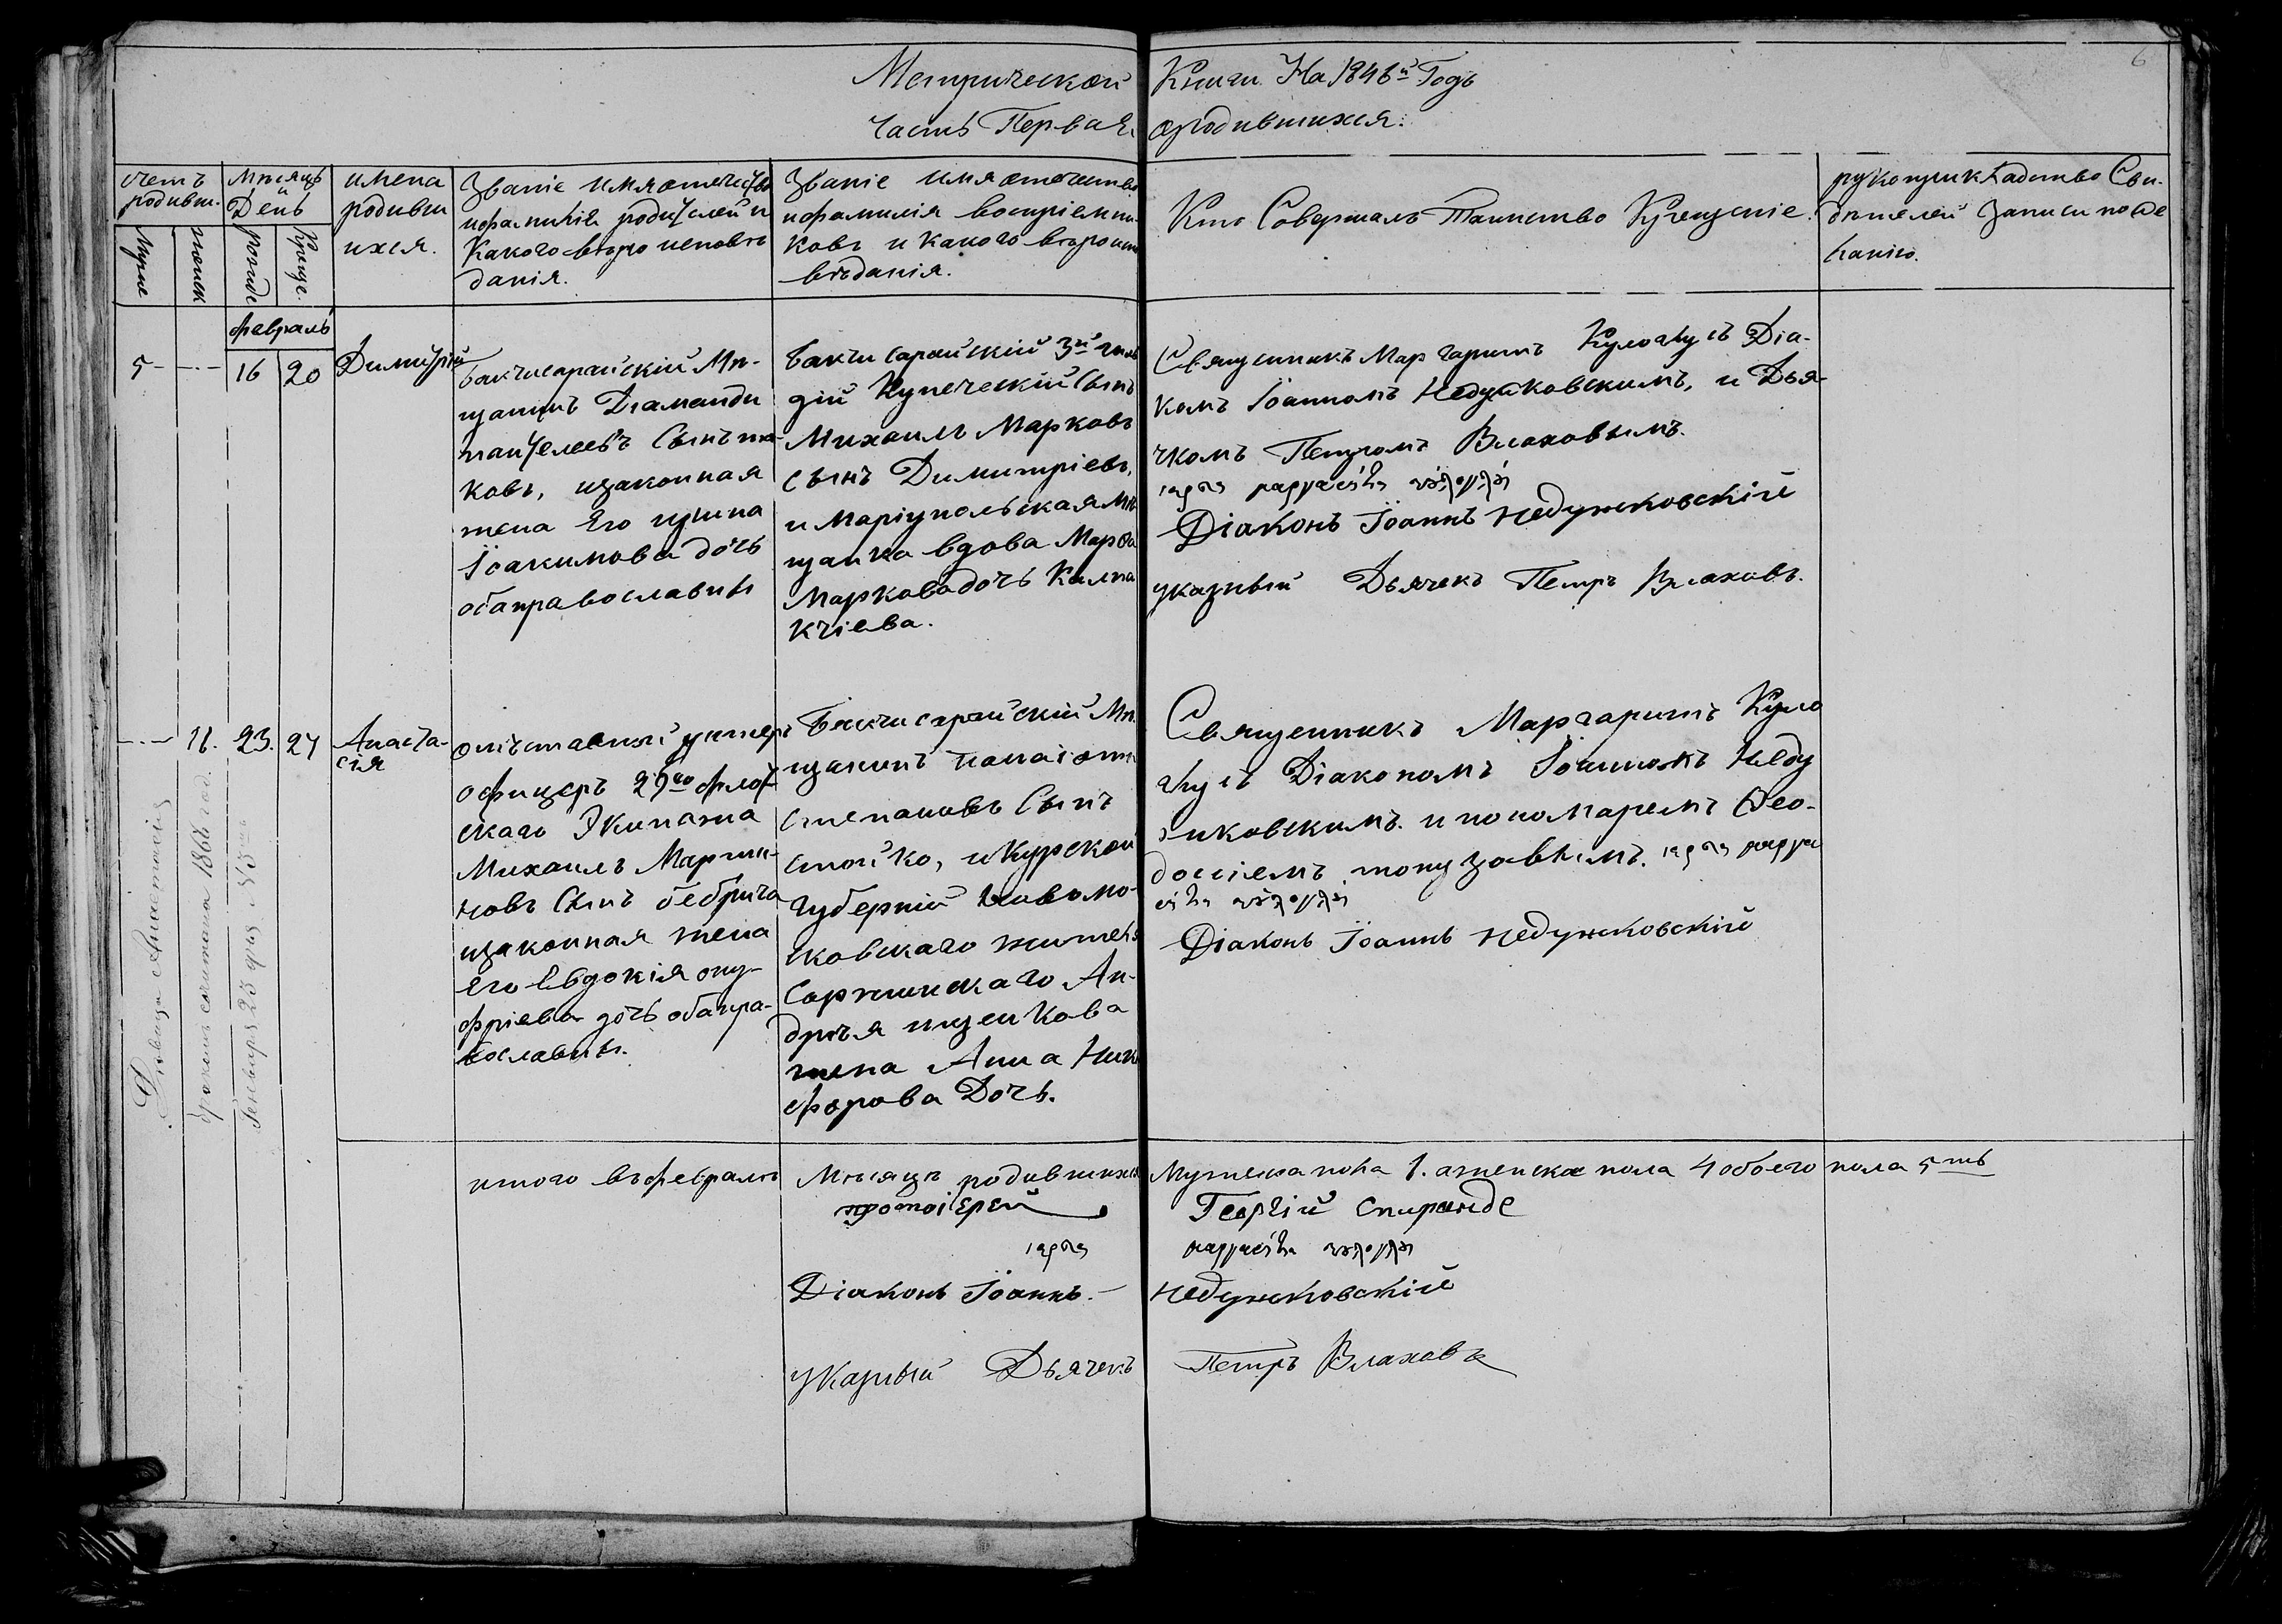 Метрической Книги На 1846й Годъ
Часть Первая, ородившихся.
6
счетъ родивш.
Мужс
женск
Мѣсяцъ и День
рожде
Креще.
имена
родивш
ихся.
Званіе имяотечество
ифамилія родителей и
Какого вѣро исповѣ
данія.
Званіе имяотечество
ифамилія воспріемни
ковъ и какого вѣроисп
вѣданія.
Кто Совершалъ Таинство Крещеніе.
рукоприкладство Сви-
дѣтелей Записи по же
ланію.
февраль
5
16
20
Димитрій
Бакчисарайскій Мѣ-
щанинъ Діаманди
пантелеевъ Сынъ
ковъ, изаконная
жена Его ирина
Іоакимова дочь
обаправославны
Бакчисарайскій 3й гиль
діи Купеческій Сынъ
Михаилъ Марковъ
сынъ Димитріевъ,
и Маріупольская мѣ
щанка вдова Марфа
Маркова дочь Калпа
кчіева.
Священникъ Маргаритъ Діа-
кономъ Іоанномъ Недзиковскимъ, и Дья-
чкомъ Петромъ Влаховымъ.
Діаконъ Іоаннъ недзиковскій
указный Дьячекъ Петръ Влаховъ.
11.
23.
27
Анаста-
сія
отставной унтеръ
офицеръ 29го флот
скаго Экипажа
Михаилъ Марти-
новъ Сынъ
изаконная жена
его Евдокія ону-
фріева дочь обапра-
вославны.
Бакчисарайскій Мѣ
щанинъ панаіотъ
степановъ Сынъ
стойко, и Курской
губерніи
жителя
Ан-
дрѣя ищенкова
жена Анна Ники
форова Дочь.
Священникъ Маргаритъ
Діакономъ Іоанномъ Недз
иковскимъ. и пономаремъ Фео-
досіемъ топузовымъ.
Діаконъ Іоаннъ недзиковскій
Дѣвица Анастасія
бракомъ сочитана 1866 год.
Генваря 23 дня №
итого въ февралѣ Мѣсяцѣ родившихся Мужеска пола 1. аженска пола 4 обоего пола 5ть
протоіерей Георгій спиранде
Діаконъ Іоаннъ недзиковскій
указный Дьячекъ Петръ Влаховъ